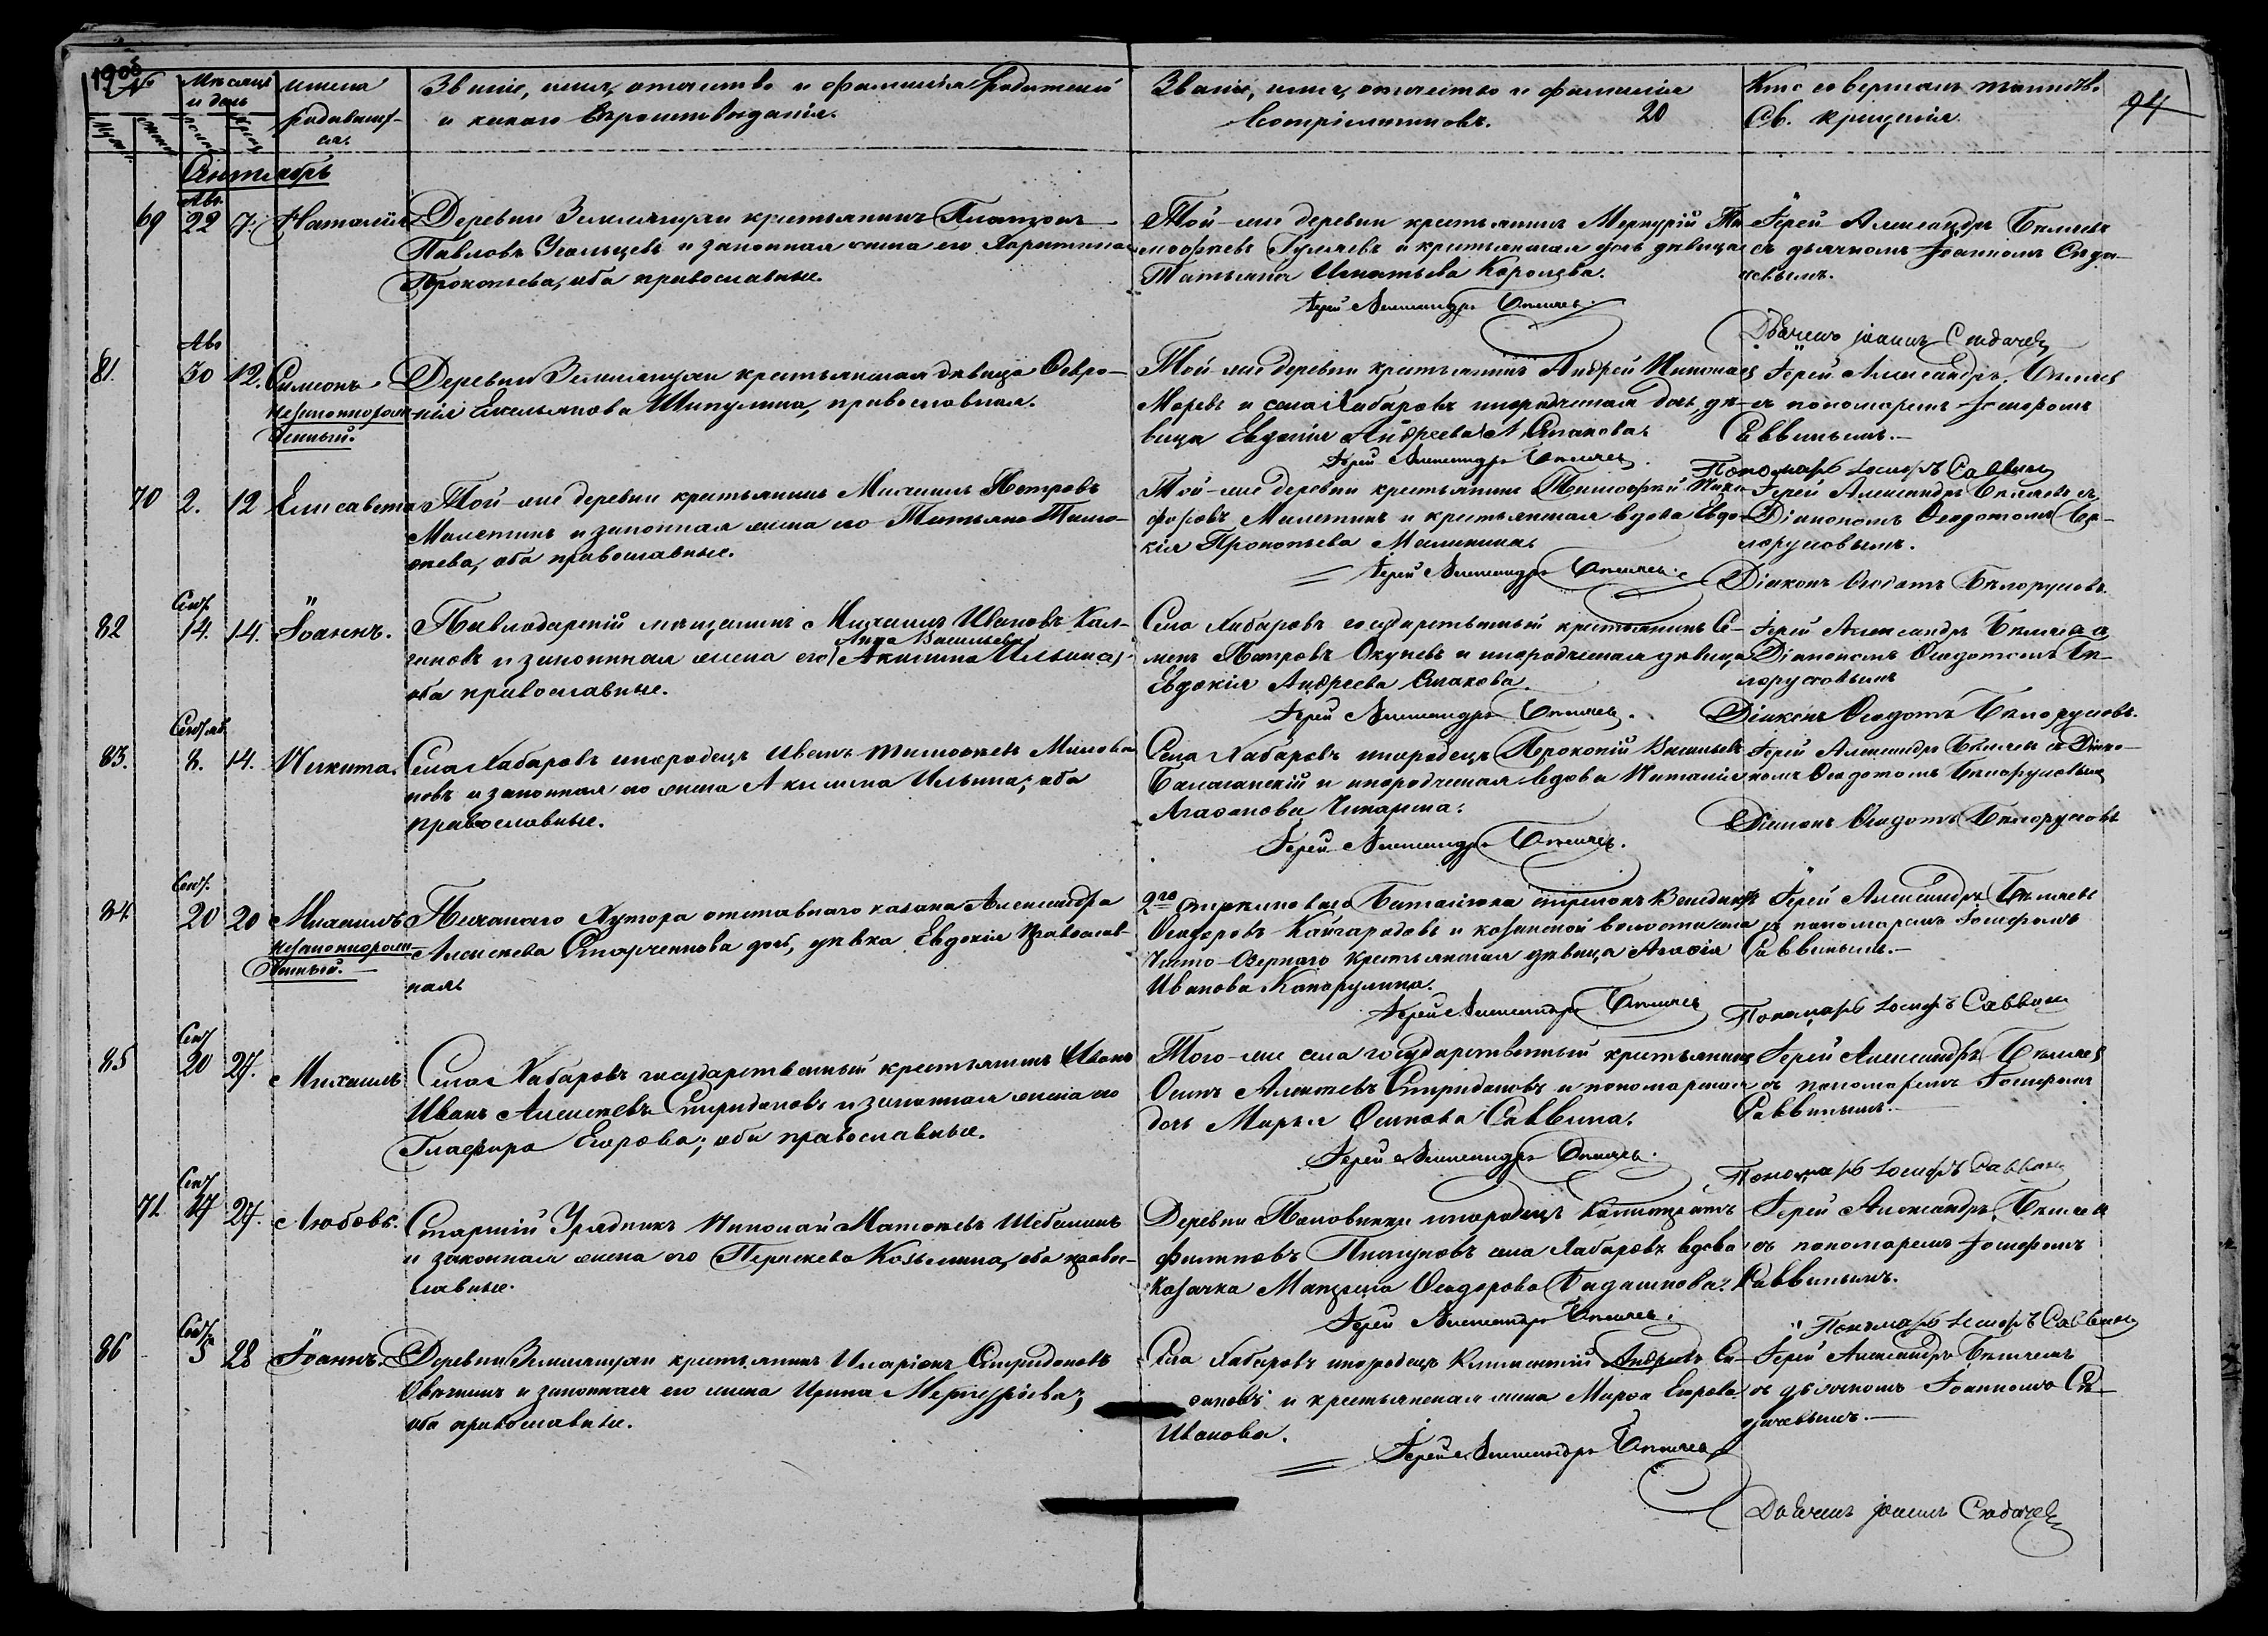 1905 №
Мѣсяцъ и день
имена родившихся.
Званіе, имя, отчество и фамилія родителей
и какого вѣроисповѣданія.
Званіе, имя, отчество и фамилія
воспріемниковъ.
20
Кто совершалъ таинство
Св. крещенія.
94
Сентябрь
69 Авг. 22 7. Наталія
Деревни крестьянинъ Платонъ
Павловъ и законная жена его Харитина
Прокопьева, оба православные.
Той-же деревни крестьянинъ Меркурій Ти-
мофѣевъ Гуляевъ и крестьянская дочь дѣвица
Татьяна Игнатьева Королева.
Іерей Александръ Бѣляевъ
Іерей Александръ Бѣляевъ
съ дьячкомъ Іоанномъ Сѣда-
чевымъ.
Дьячекъ Іоаннъ Сѣдачевъ
81. Авг. 30 12. Симеонъ
незаконнорож-
денный.
Деревни крестьянская дѣвица Февро-
нія Емельянова Шипулина, православная.
Той-же деревни крестьянинъ Андрей Николаевъ
Моревъ и села Хабаровъ инородческая дочь дѣ-
вица Евдокія Андреева
Іерей Александръ Бѣляевъ.
Іерей Александръ Бѣляевъ
съ пономаремъ Іосифомъ
Саввинымъ.
Пономарь Іосифъ Саввинъ
70 2. 12 Елисавета
Той-же деревни крестьянинъ Михаилъ Петровъ
и законная жена его Татьяна Тимо-
ѳеева, оба православные.
Той-же деревни крестьянинъ Тимофей Ники-
форовъ и крестьянская вдова Евдо-
кія Прокопьева
Іерей Александръ Бѣляевъ.
Іерей Александръ Бѣляевъ съ
Діакономъ Ѳеодотомъ Бѣ-
лорусовымъ.
Діаконъ Ѳеодотъ Бѣлорусовъ.
82 Сент. 14. 14. Іоаннъ.
Павлодарскій мѣщанинъ Михаилъ Ивановъ Кал-
и законная жена его Акилина Ильина,
Анна Васильева
оба православные.
Села Хабаровъ государственный крестьянинъ Се-
менъ Петровъ Окуневъ и инородческая дѣвица
Евдокія Андреева
Іерей Александръ Бѣляевъ.
Іерей Александръ Бѣляевъ съ
Діакономъ Ѳеодотомъ Бѣ-
лорусовымъ
Діаконъ Ѳеодотъ Бѣлорусовъ.
83. Сентяб. 8. 14. Никита.
Села Хабаровъ инородецъ Иванъ Тимоѳеевъ Милова-
новъ и законная его жена Акилина Ильина, оба
православные.
Села Хабаровъ инородецъ Прокопій Васильевъ
и инородческая вдова
Агафонова
Іерей Александръ Бѣляевъ.
Іерей Александръ Бѣляевъ съ Діако-
номъ Ѳеодотомъ Бѣлорусовымъ
Діаконъ Ѳеодотъ Бѣлорусовъ
84. Сент. 20 20 Михаилъ
незаконнорож-
денный.
Песчанаго Хутора отставнаго казака Александра
Алексѣева дочь, дѣвка Евдокія православ-
ная
2го стрѣлковаго Баталіона стрѣлокъ
Ѳеодоровъ Кайгародовъ и волости села
Чисто-Озернаго крестьянская дѣвица Агафія
Иванова
Іерей Александръ Бѣляевъ
Іерей Александръ Бѣляевъ
съ пономаремъ Іосифомъ
Саввинымъ.
Пономарь Іосифъ Саввинъ
85 Сент. 20 27. Михаилъ
Села Хабаровъ государственный крестьянинъ Иванъ
Иванъ Алексѣевъ Спиридоновъ и законная жена его
Глафира Егорова; оба православные.
Того-же села государственный крестьянинъ
Осипъ Алексѣевъ Спиридоновъ и пономарская
дочь Марья Осипова Саввина.
Іерей Александръ Бѣляевъ.
Іерей Александръ Бѣляевъ
съ пономаремъ Іосифомъ
Саввинымъ.
Пономарь Іосифъ Саввинъ
71. Сент. 17 27. Любовь.
Старшій Урядникъ Николай Матвѣевъ Шебалинъ
и законная жена его Параскева Козьмина, оба право-
славные.
Деревни Половинки инородецъ
Филиповъ села Хабаровъ вдова
казачка Матрена Ѳеодорова
Іерей Александръ Бѣляевъ.
Іерей Александръ Бѣляевъ
съ пономаремъ Іосифомъ
Саввинымъ.
Пономарь Іосифъ Саввинъ
86 Сент. 5 28 Іоаннъ.
Деревни крестьянинъ Иларіонъ Спиридоновъ
Овечкинъ и законная его жена Ирина Меркурьева;
оба православные.
Села Хабаровъ инородецъ Климентій Андреевъ
и крестьянская жена Марѳа Егорова
Иванова.
Іерей Александръ Бѣляевъ
Іерей Александръ Бѣляевъ
съ дьячкомъ Іоанномъ Сѣ-
дачевымъ.
Дьячекъ Іоаннъ Сѣдачевъ